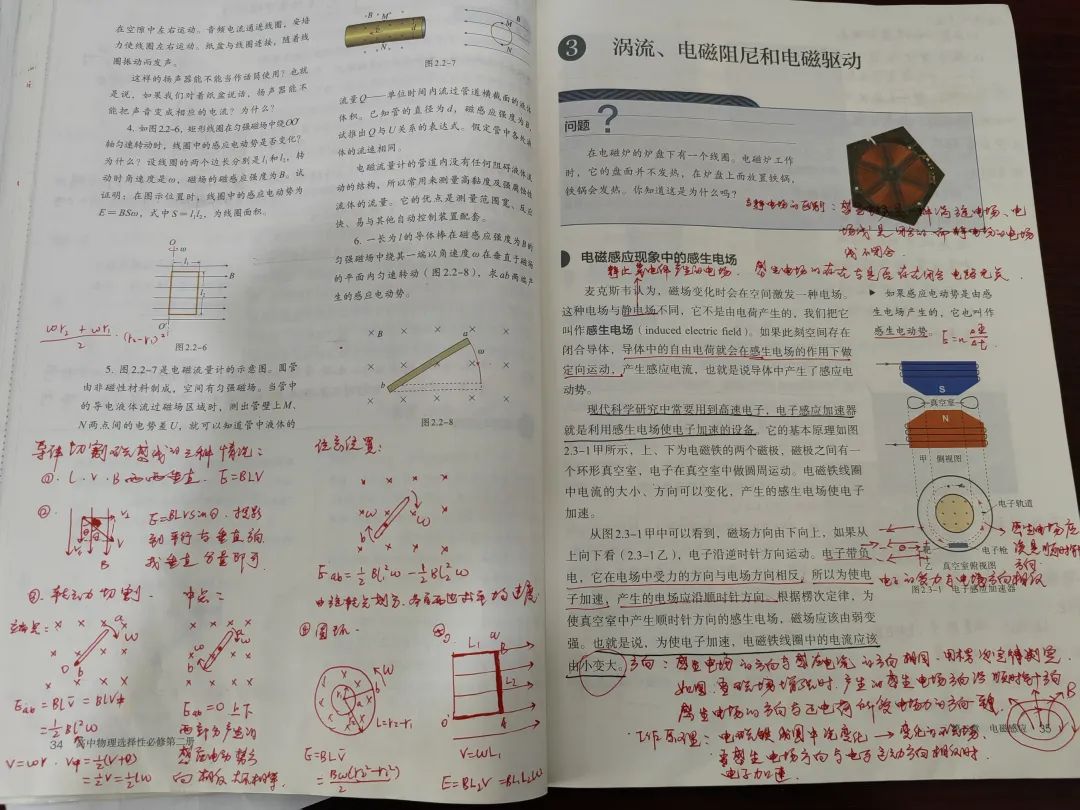 在空隙中左右运动。音频电流通进线圈，安培
力使线圈左右运动。纸盆与线圈连接，随着线
圈振动而发声。
这样的扬声器能不能当作话筒使用？也就
是说，如果我们对着纸盆说话，扬声器能不
能把声音变成相应的电流？为什么？
4. 如图2.2-6，矩形线圈在匀强磁场中绕OO′
轴匀速转动时，线圈中的感应电动势是否变化？
为什么？设线圈的两个边长分别是l₁和l₂，转
动时角速度是ω，磁场的磁感应强度为B。试
证明：在图示位置时，线圈中的感应电动势为
E=BSω，式中S=l₁l₂，为线圈面积。
O
ω
l₁
B
l₂
O′
图2.2-6
ωr₂+ωr₁
2
·(r₂-r₁)
5. 图2.2-7是电磁流量计的示意图。圆管
由非磁性材料制成，空间有匀强磁场。当管中
的导电液体流过磁场区域时，测出管壁上M、
N两点间的电势差U，就可以知道管中液体的
B M
N
M
B
N
图2.2-7
流量Q——单位时间内流过管道横截面的液体
体积。已知管的直径为d，磁感应强度为B，
试推出Q与U关系的表达式。假定管中各处液
体的流速相同。
电磁流量计的管道内没有任何阻碍液体流
动的结构，所以常用来测量高黏度及强腐蚀性
流体的流量。它的优点是测量范围宽、反应
快、易与其他自动控制装置配套。
6. 一长为l的导体棒在磁感应强度为B的
匀强磁场中绕其一端以角速度ω在垂直于磁场
的平面内匀速转动（图2.2-8），求ab两端产
生的感应电动势。
B
a
ω
b
图2.2-8
导体切割磁感线的三种情况：
①. L、V、B两两垂直. E=BLV
②.
E=BLVsinθ. 投影
到平行与垂直的
找垂直分量即可.
V
B
③. 转动切割.
中点：
端点：
a
ω
b
Eab=BLV̄=BLV中
=½BL²ω
V=ωr. V中=½(V+0)
=½V=½Lω
Eab=0 上下
两部分产生的
感应电动势方
向相反大小相等.
34 高中物理选择性必修第二册
任意位置:
ω
Eab=½BL₁²ω-½BL₂²ω
④圆环
ω
L=r₂-r₁
E=BLV̄
=Bω(r₂²-r₁²)
2
L₁
B
L₂
A
V=ωL₁
E=BL₂V=BL₁L₂ω
3 涡流、电磁阻尼和电磁驱动
问题？
在电磁炉的炉盘下有一个线圈。电磁炉工作
时，它的盘面并不发热，在炉盘上面放置铁锅，
铁锅会发热。你知道这是为什么吗？
与静电场的区别：感生电场是一种涡旋电场、电
场线是闭合的而静电场的电场
线不闭合
电磁感应现象中的感生电场
静止电荷产生的电场. 感生电场的存在与是否存在闭合电路无关.
麦克斯韦认为，磁场变化时会在空间激发一种电场。
这种电场与静电场不同，它不是由电荷产生的，我们把它
叫作感生电场（induced electric field）。如果此刻空间存在
闭合导体，导体中的自由电荷就会在感生电场的作用下做
定向运动，产生感应电流，也就是说导体中产生了感应电
动势。
现代科学研究中常要用到高速电子，电子感应加速器
就是利用感生电场使电子加速的设备。它的基本原理如图
2.3-1甲所示，上、下为电磁铁的两个磁极，磁极之间有一
个环形真空室，电子在真空室中做圆周运动。电磁铁线圈
中电流的大小、方向可以变化，产生的感生电场使电子
加速。
从图2.3-1甲中可以看到，磁场方向由下向上，如果从
上向下看（2.3-1乙），电子沿逆时针方向运动。电子带负
电，它在电场中受力的方向与电场方向相反，所以为使电
子加速，产生的电场应沿顺时针方向。根据楞次定律，为
使真空室中产生顺时针方向的感生电场，磁场应该由弱变
强。也就是说，为使电子加速，电磁铁线圈中的电流应该
由小变大。
如果感应电动势是由感
生电场产生的，它也叫作
感生电动势。
E=nΔΦ/Δt
S
真空室
N
甲 侧视图
电子轨道
靶
电子枪
乙 真空室俯视图
图2.3-1 电子感应加速器
感生电场应
该是顺时针
方向
电子的受力与电场方向相反
方向：感生电场的方向与感应电流的方向相同. 用楞次定律判定.
如图. 当磁场增强时. 产生的感生电场方向沿顺时针方向
感生电场的方向与正电荷所受电场力的方向一致.
B
工作原理：电磁铁线圈中电流变化→变化的磁场
当感生电场方向与电子运动方向相反时
电子加速.
电磁感应 35